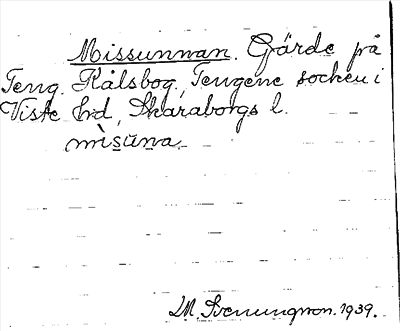 Missunnan. Gärde på
Teng. Kålsbog., Tengene socken i
Viste hrd, Skaraborgs l.
mìsūna.
LM. Svenungson. 1939.